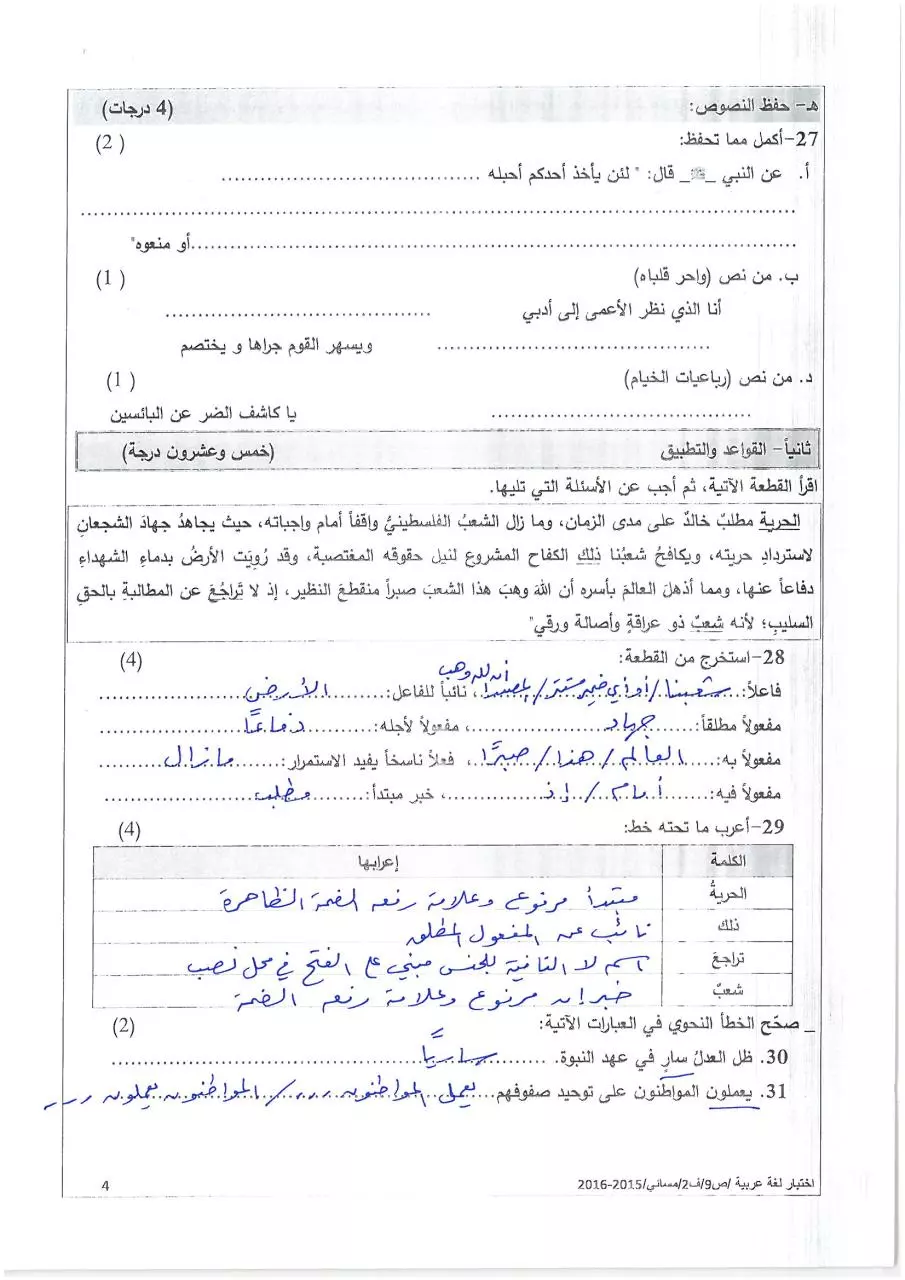 هـ- حفظ النصوص: (4 درجات)
27-أكمل مما تحفظ: (2 )
أ. عن النبي _ﷺ_ قال: " لئن يأخذ أحدكم أحبله ........................................
........................................................................................................
........................................................................................أو منعوه"
ب. من نص (واحر قلباه) (1 )
أنا الذي نظر الأعمى إلى أدبي ........................................
........................................ ويسهر القوم جراها و يختصم
د. من نص (رباعيات الخيام) (1 )
........................................ يا كاشف الضر عن البائسين
ثانياً- القواعد والتطبيق (خمس وعشرون درجة)
اقرأ القطعة الآتية، ثم أجب عن الأسئلة التي تليها.
الحرية مطلبٌ خالدٌ على مدى الزمان، وما زال الشعبُ الفلسطينيُ واقفاً أمام واجباته، حيث يجاهدُ جهادَ الشجعانِ
لاستردادِ حريته، ويكافحُ شعبُنا ذلك الكفاح المشروع لنيل حقوقه المغتصبة، وقد رُوِيَت الأرضُ بدماءِ الشهداءِ
دفاعاً عنها، ومما أذهلَ العالمَ بأسره أن اللهَ وهبَ هذا الشعبَ صبراً منقطعَ النظير، إذ لا تَراجُعَ عن المطالبةِ بالحقِ
السليبِ؛ لأنه شعبٌ ذو عراقةٍ وأصالة ورقي"
28-استخرج من القطعة: (4)
أن الله وهب
فاعلاً: شعبنا / أو أي ضمير مستتر / المصدر، نائباً للفاعل: الأرض
مفعولاً مطلقاً: جهاد، مفعولاً لأجله: دفاعًا
مفعولاً به: العالم / هذا / صبرًا، فعلاً ناسخاً يفيد الاستمرار: ما زال
مفعولاً فيه: أمام / إذ، خبر مبتدأ: مطلب
29-أعرب ما تحته خط: (4)
الكلمة إعرابها
الحريةُ مبتدأ مرفوع وعلامة رفعه الضمة الظاهرة
ذلك نائب عن المفعول المطلق
تراجعَ اسم لا النافية للجنس مبني على الفتح في محل نصب
شعبٌ خبر إن مرفوع وعلامة رفعه الضمة
_ صحّح الخطأ النحوي في العبارات الآتية: (2)
30. ظل العدلُ سارٍ في عهد النبوة. ساريًا
31. يعملون المواطنون على توحيد صفوفهم يعمل المواطنون ... / المواطنون يعملون ...
اختبار لغة عربية /ص9/ف2/مسائي/2015-2016 4